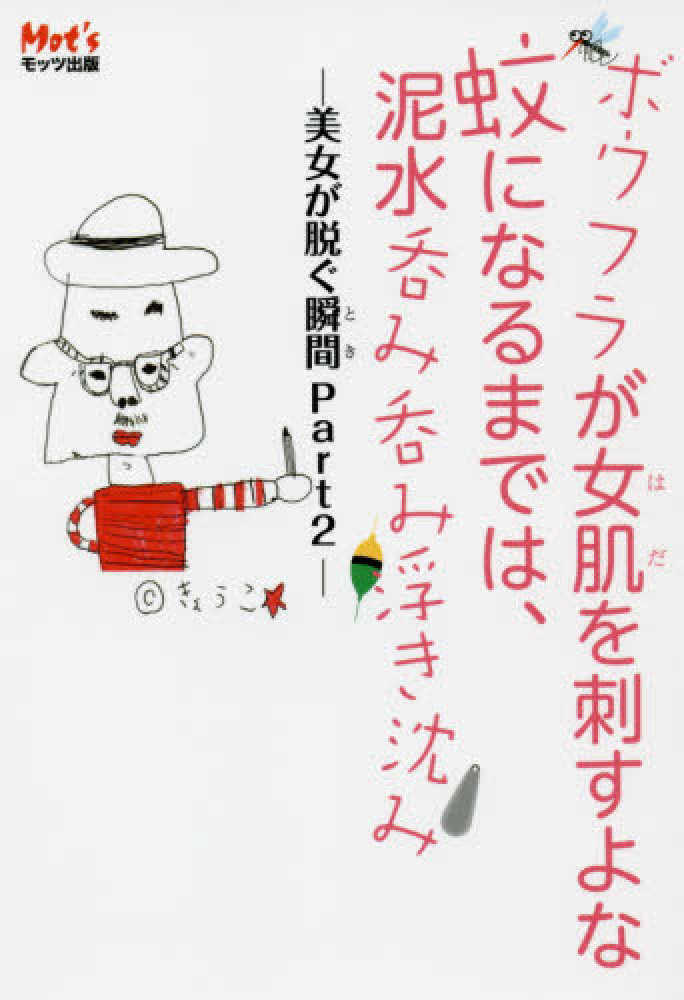 Mot's
モッツ出版
ボウフラが女肌を刺すよな
はだ
蚊になるまでは、
泥水呑み呑み浮き沈み
―美女が脱ぐ瞬間 Part2―
とき
©きょうこ